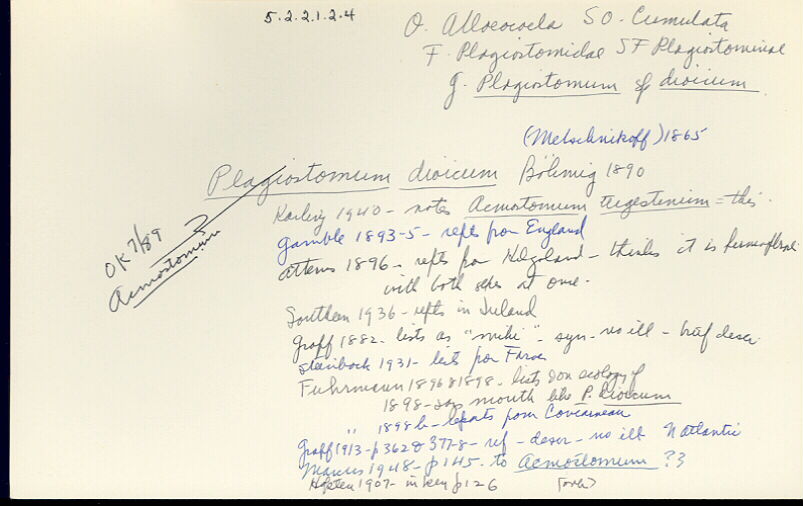 5.2.2.1.2.4
O. Alloeocoela SO. Cumulata
F. Plagiostomidae SF Plagiostominae
g. Plagiostomum sp dioicum
(Metschnikoff) 1865
Plagiostomum dioicum Böhmig 1890
Karling 1940 - notes Acmostomum tergestinum = this.
Gamble 1893-5 - repts from England
Attems 1896 - repts from Helgoland - thinks it is
with both sexes at once.
OK 7/89
Acmostomum
Southern 1936 - repts in Ireland
Graff 1882 - lists as "mihi" - syn - no ill - brief descr
Steinbock 1931 - lists from Faroe
Fuhrmann 1896 & 1898 - lists ecology of
1898 - says mouth like P. dioicum
" 1898b - reports from Concarneau
Graff 1913 - p 362 & 377-8 - ref - descr - no ill N Atlantic
Marcus 1948 - p 145. to Acmostomum ??
Hofsten 1907 - in key p 126